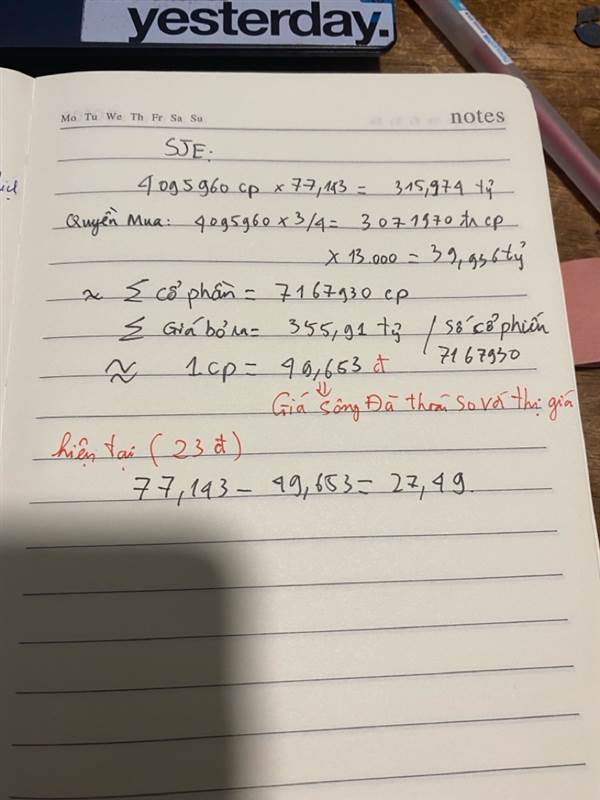 yesterday.
Mo Tu We Th Fr Sa Su
notes
SJE:
4095960 cp × 77,143 = 315,974 tỷ
Quyền Mua: 4095960 × 3/4 = 3071970 cp
× 13.000 = 39,936 tỷ
≈ Σ cổ phần = 7167930 cp
Σ Giá bỏ ra = 355,91 tỷ / số cổ phiến
7167930
≈ 1 cp = 49,653 đ
⇓
Giá sông Đà thoái so với thị giá
hiện tại (23 đ)
77,143 - 49,653 = 27,49.